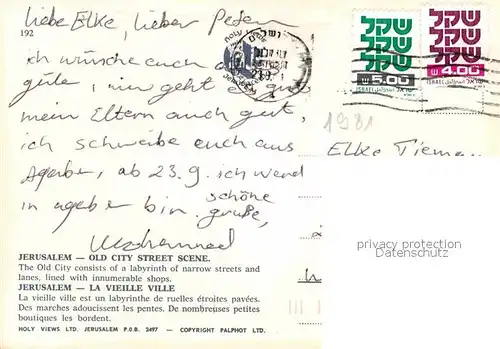 liebe Elke, lieber Peter
192
ich wünsche euch
gute, mir geht es gut
mein Eltern auch gut,
ich schreibe euch aus
ab 23.9. ich werd
in bin. schöne
grüße,
Mohammed
HOLY
JERUSALEM
שקל
שקל
שקל
5.00
ISRAEL اسرائيل ישראל
שקל
שקל
שקל
4.00
ISRAEL اسرائيل ישראל
1981
Elke Tieman
privacy protection
Datenschutz
JERUSALEM — OLD CITY STREET SCENE.
The Old City consists of a labyrinth of narrow streets and
lanes, lined with innumerable shops.
JERUSALEM — LA VIEILLE VILLE
La vieille ville est un labyrinthe de ruelles étroites pavées.
Des marches adoucissent les pentes. De nombreuses petites
boutiques les bordent.
HOLY VIEWS LTD. JERUSALEM P.O.B. 2497 — COPYRIGHT PALPHOT LTD.